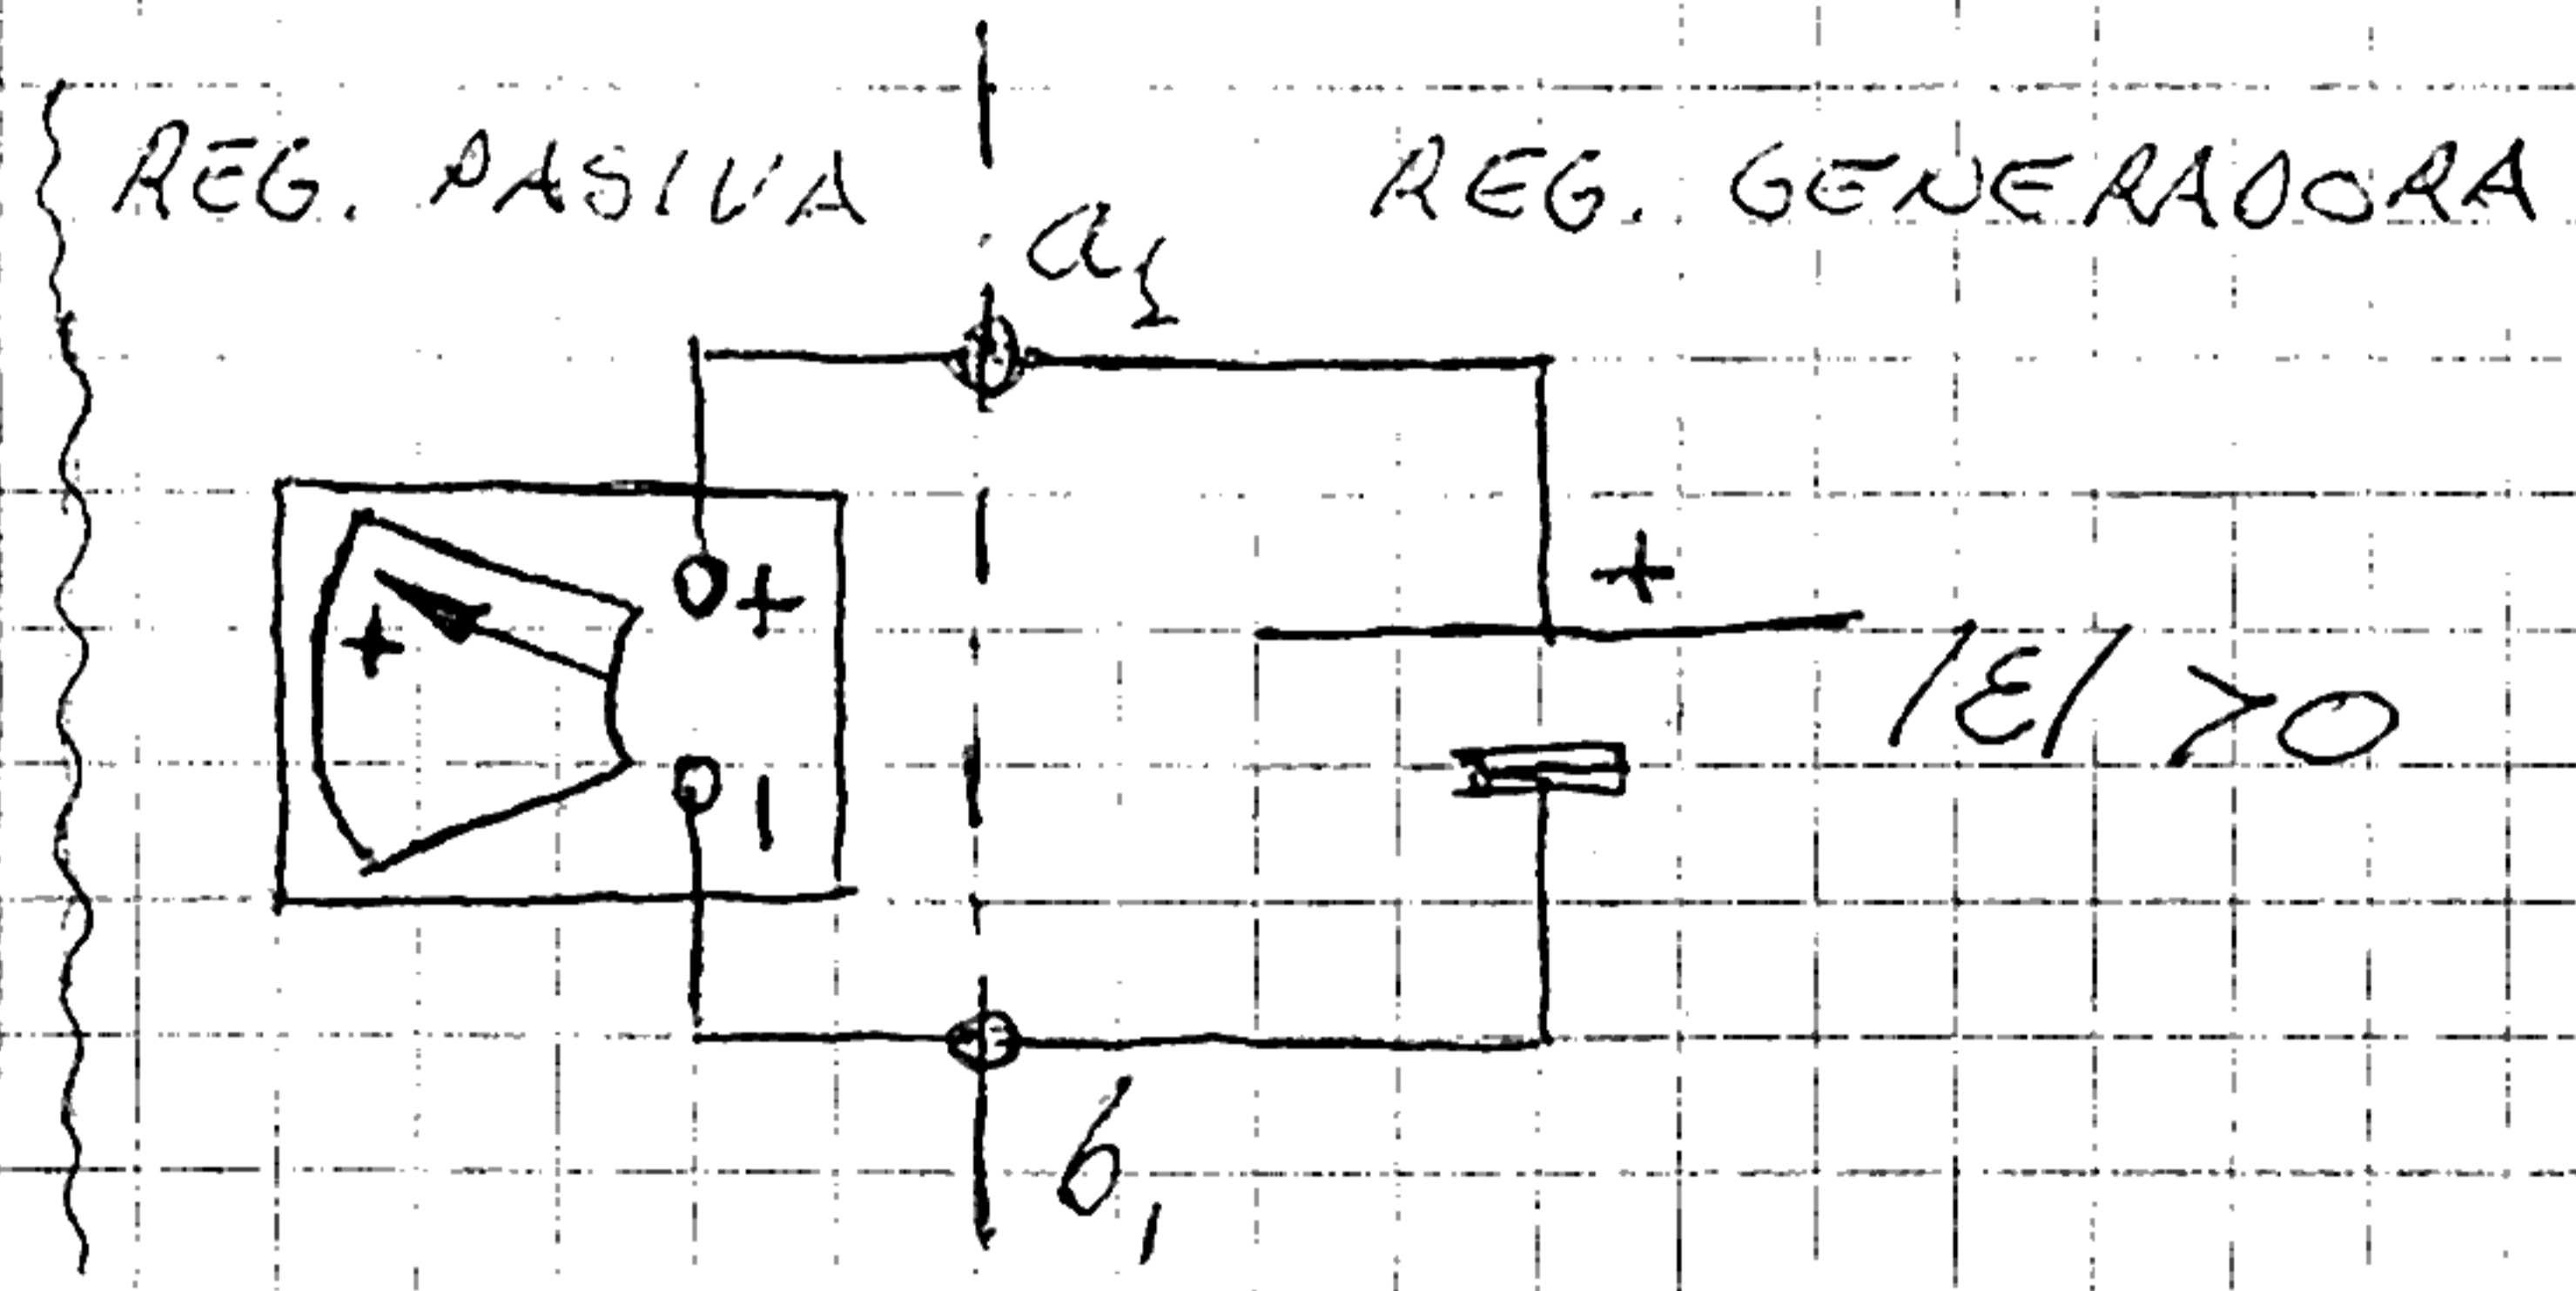 REG. PASIVA
REG. GENERADORA
a1
+
+
+
-
|ε| >0
b1